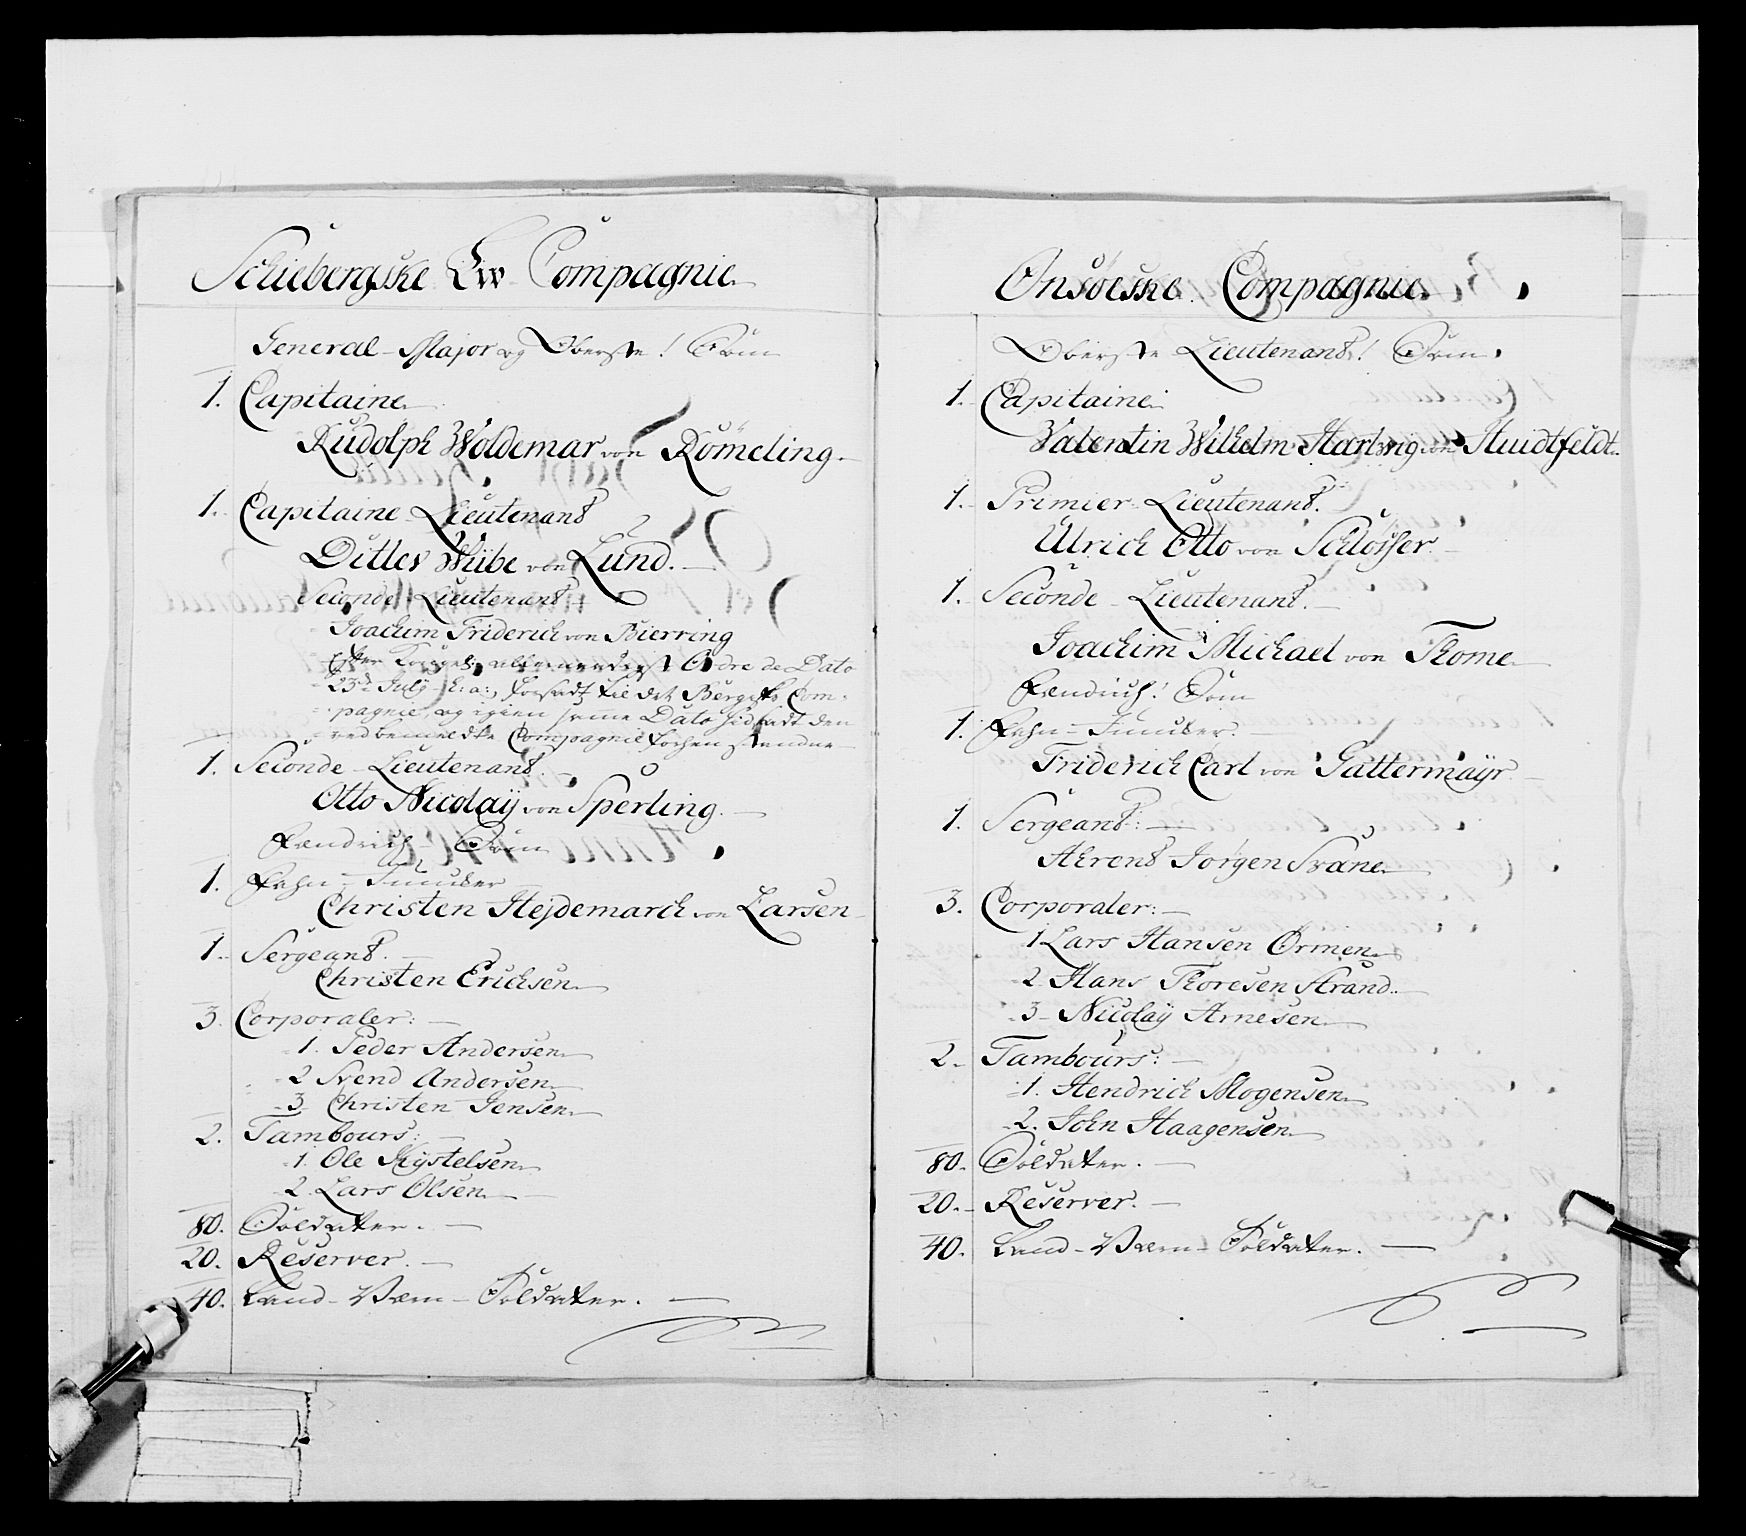 Schiebergske Liv Compagnie
General-Major og Oberste! Som
1. Capitaine
Rudolph Woldemar von Römeling.
1. Capitaine Lieutenant
Ditlev Wibe von Lund.
Seconde Lieutenant
Joachim Friderich von Bierring
Efter Kongel: allernaadigst Ordre de Dato
23de July h: a: forsadt til det Bergske Com-
pagnie, og igien samme Dato hidsadt den
ved bemeldte Compagnie forhen staaende
1. Seconde Lieutenant.
Otto Nicolaÿ von Sperling.
Fændrich Som
1. Fahn-Juncker
Christen Hejdemarck von Larsen
1. Sergeant.
Christen Erichsen
3. Corporaler:
1. Peder Andersen
2 Svend Andersen
3 Christen Jensen
2. Tambours:
1. Ole Kÿstelsen
2 Lars Olsen
80. Soldater.
20. Reserver.
40. Land-Værn-Soldater.
Onsöeske Compagnie
Oberste Lieutenant! Som
1. Capitaine
Valentin Wilhelm Hartwig von Huidtfeldt
1. Primier Lieutenant.
Ulrich Otto von Schlösser
1. Seconde Lieutenant.
Joachim Michael von Thome
Fændrich! Som
1. Fahn-Juncker.
Friderich Carl von Gattermaÿr
1. Sergeant:
Ahrent Jörgen Svane
3. Corporaler:
1 Lars Hansen Ormen
2 Hans Thoresen Strand.
3 Nicolaÿ Arnesen
2. Tambours:
1. Hendrich Mogensen
2. John Haagensen
80. Soldater.
20. Reserver.
40. Land-Værn-Soldater.